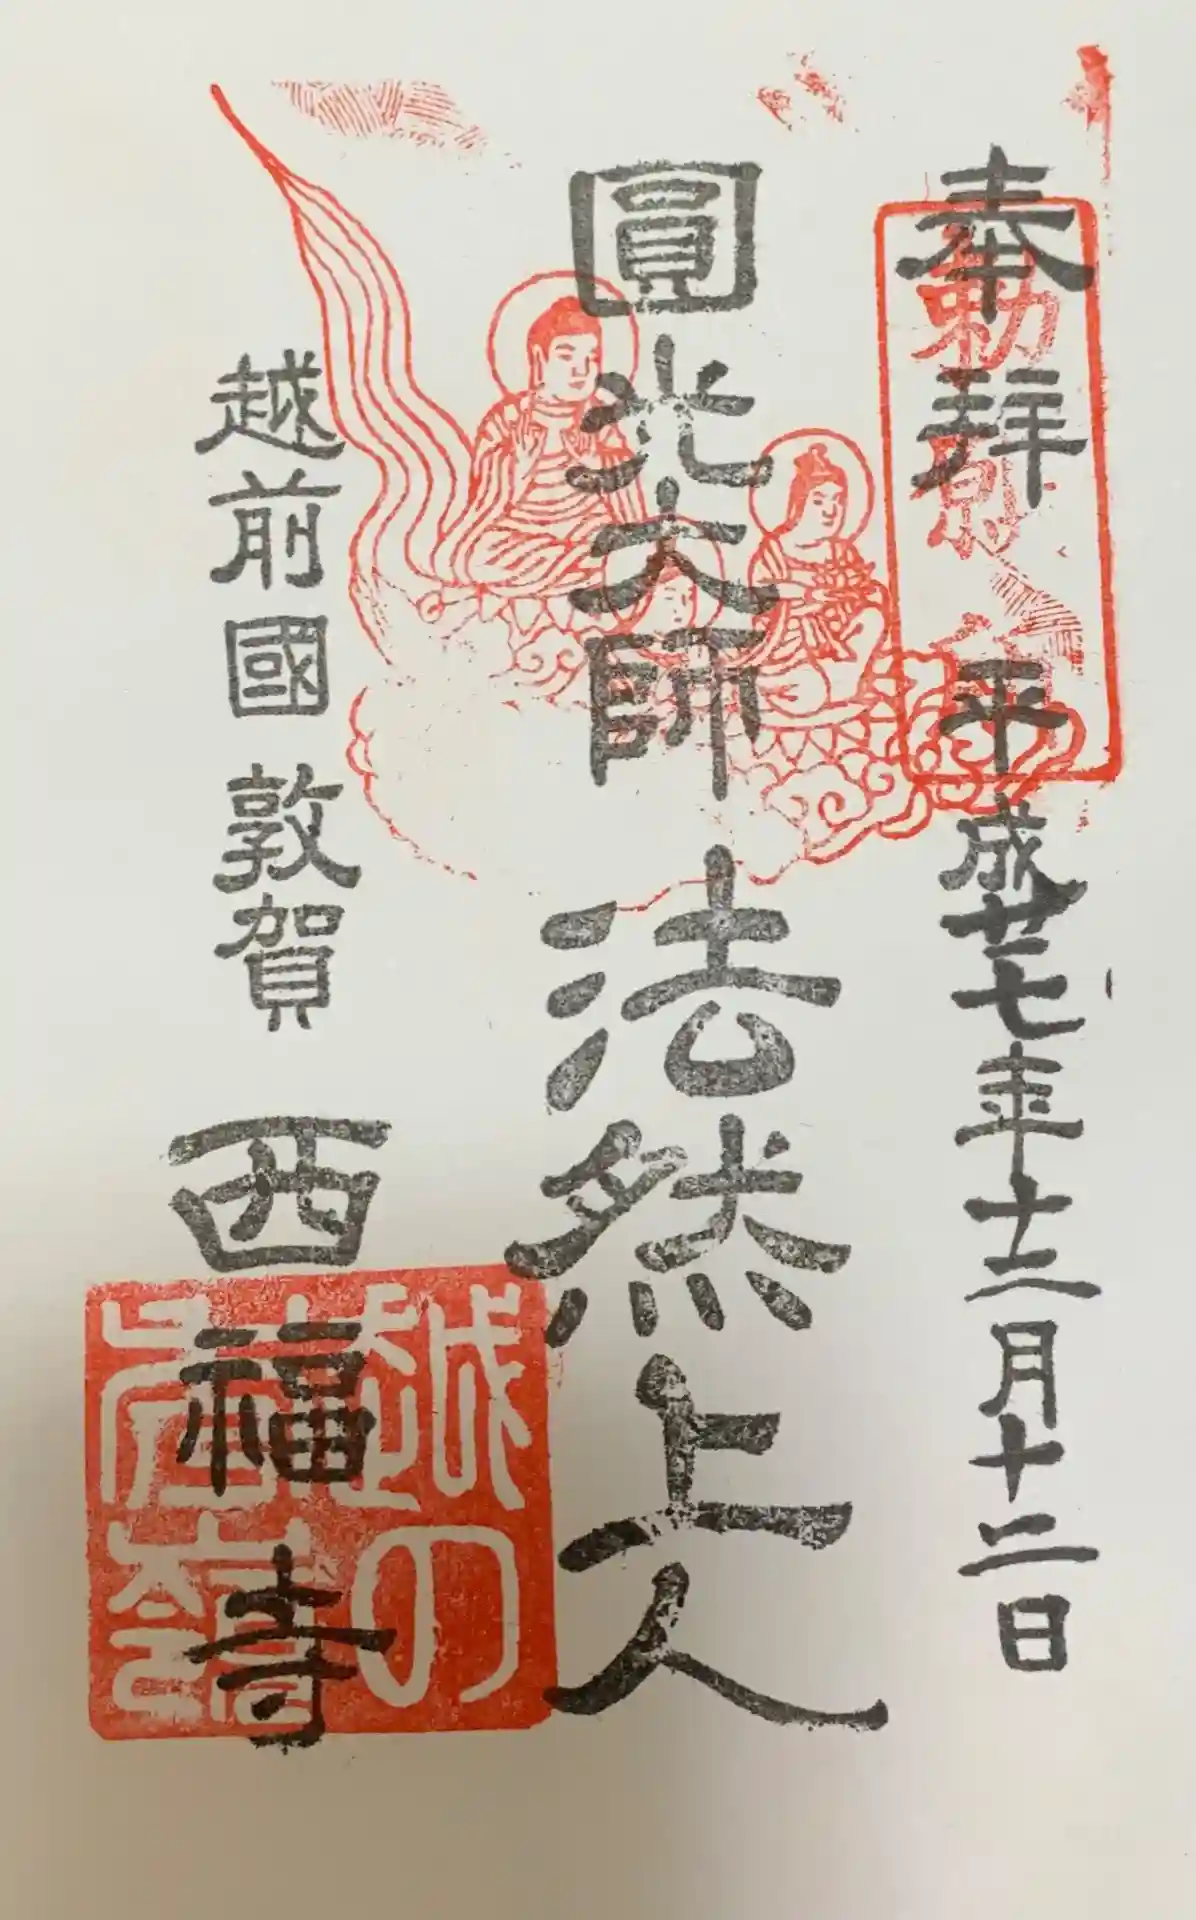 奉拝 平成廿七年十二月十二日
圓光大師 法然上人
越前國 敦賀 西福寺
勅
越の